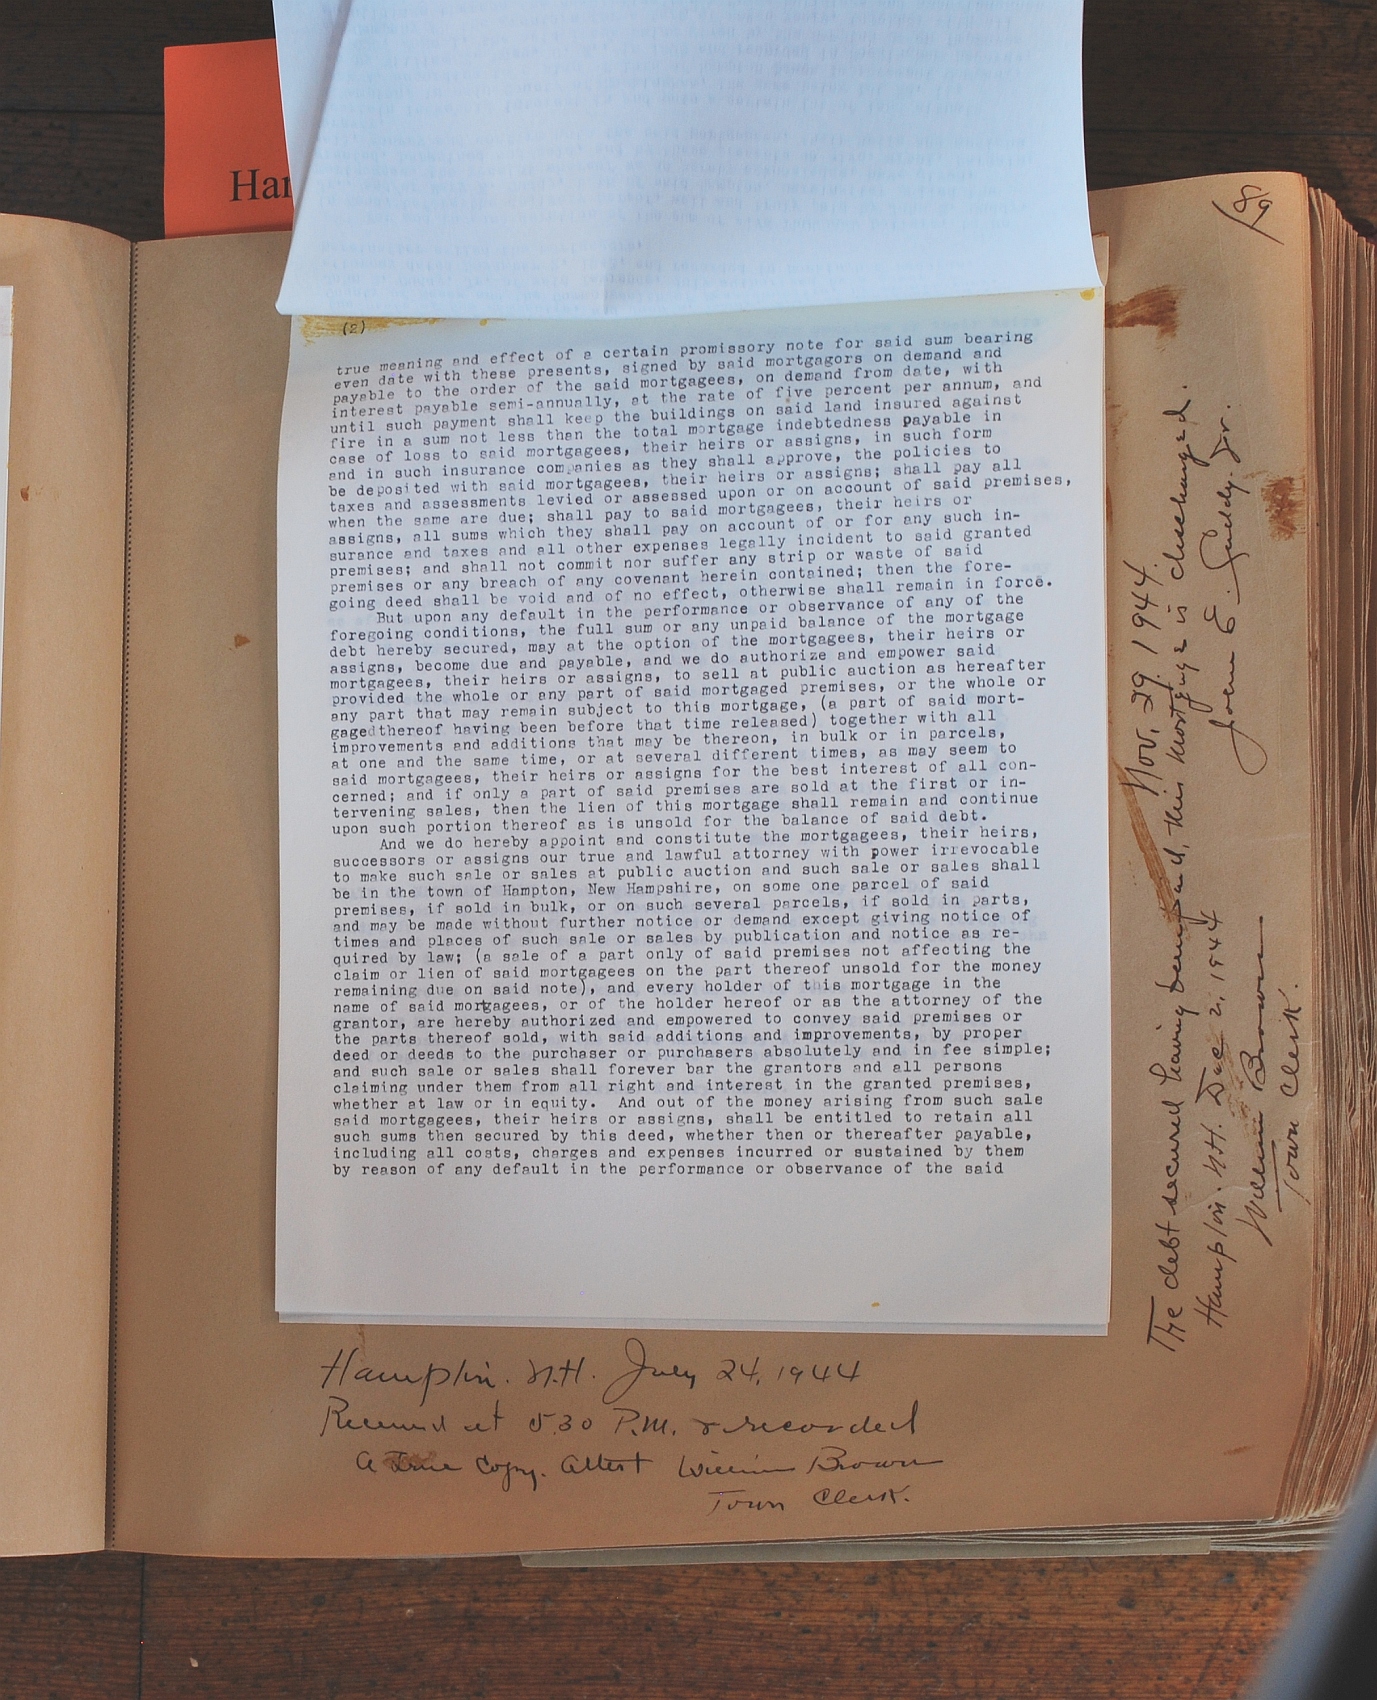 Har
189
(2)
true meaning and effect of a certain promissory note for said sum bearing
even date with these presents, signed by said mortgagors on demand and
payable to the order of the said mortgagees, on demand from date, with
interest payable semi-annually, at the rate of five percent per annum, and
until such payment shall keep the buildings on said land insured against
fire in a sum not less than the total mortgage indebtedness payable in
case of loss to said mortgagees, their heirs or assigns, in such form
and in such insurance companies as they shall approve, the policies to
be deposited with said mortgagees, their heirs or assigns; shall pay all
taxes and assessments levied or assessed upon or on account of said premises,
when the same are due; shall pay to said mortgagees, their heirs or
assigns, all sums which they shall pay on account of or for any such in-
surance and taxes and all other expenses legally incident to said granted
premises; and shall not commit nor suffer any strip or waste of said
premises or any breach of any covenant herein contained; then the fore-
going deed shall be void and of no effect, otherwise shall remain in force.
But upon any default in the performance or observance of any of the
foregoing conditions, the full sum or any unpaid balance of the mortgage
debt hereby secured, may at the option of the mortgagees, their heirs or
assigns, become due and payable, and we do authorize and empower said
mortgagees, their heirs or assigns, to sell at public auction as hereafter
provided the whole or any part of said mortgaged premises, or the whole or
any part that may remain subject to this mortgage, (a part of said mort-
gagedthereof having been before that time released) together with all
improvements and additions that may be thereon, in bulk or in parcels,
at one and the same time, or at several different times, as may seem to
said mortgagees, their heirs or assigns for the best interest of all con-
cerned; and if only a part of said premises are sold at the first or in-
tervening sales, then the lien of this mortgage shall remain and continue
upon such portion thereof as is unsold for the balance of said debt.
And we do hereby appoint and constitute the mortgagees, their heirs,
successors or assigns our true and lawful attorney with power irrevocable
to make such sale or sales at public auction and such sale or sales shall
be in the town of Hampton, New Hampshire, on some one parcel of said
premises, if sold in bulk, or on such several parcels, if sold in parts,
and may be made without further notice or demand except giving notice of
times and places of such sale or sales by publication and notice as re-
quired by law; (a sale of a part only of said premises not affecting the
claim or lien of said mortgagees on the part thereof unsold for the money
remaining due on said note), and every holder of this mortgage in the
name of said mortgagees, or of the holder hereof or as the attorney of the
grantor, are hereby authorized and empowered to convey said premises or
the parts thereof sold, with said additions and improvements, by proper
deed or deeds to the purchaser or purchasers absolutely and in fee simple;
and such sale or sales shall forever bar the grantors and all persons
claiming under them from all right and interest in the granted premises,
whether at law or in equity.  And out of the money arising from such sale
said mortgagees, their heirs or assigns, shall be entitled to retain all
such sums then secured by this deed, whether then or thereafter payable,
including all costs, charges and expenses incurred or sustained by them
by reason of any default in the performance or observance of the said
Hampton. N.H. July 24, 1944
Received at 5.30 P.M. & recorded
A True Copy. Attest William Brown
Town Clerk.
Nov. 29 1944.
The debt secured having been paid, this mortgage is discharged.
E. Jr.
Hampton. N.H. Dec 2, 1944
William Brown
Town Clerk.